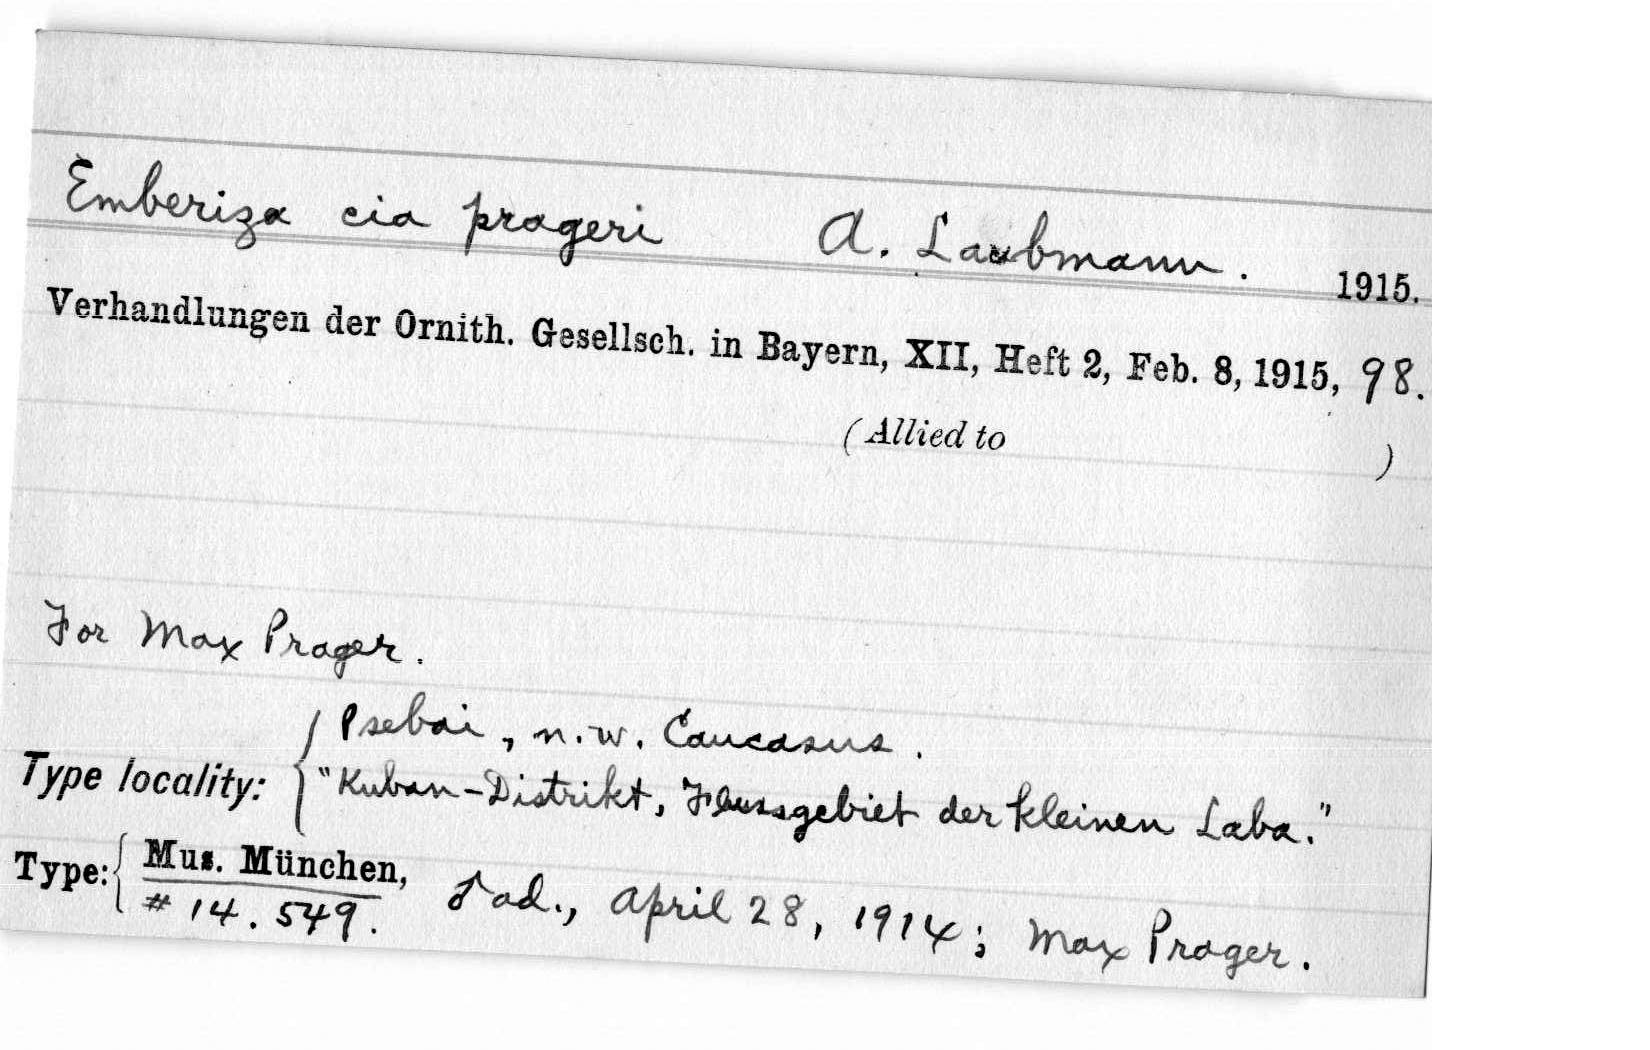 Emberiza cia prageri A. Laubmann. 1915.
Verhandlungen der Ornith. Gesellsch. in Bayern, XII, Heft 2, Feb. 8, 1915, 98.
(Allied to )
For Max Prager.
Psebai, n.w. Caucasus.
Type locality: { "Kuban-Distrikt, Flussgebiet der kleinen Laba."
Type: { Mus. München, ♂ ad., April 28, 1914; Max Prager.
# 14.549.